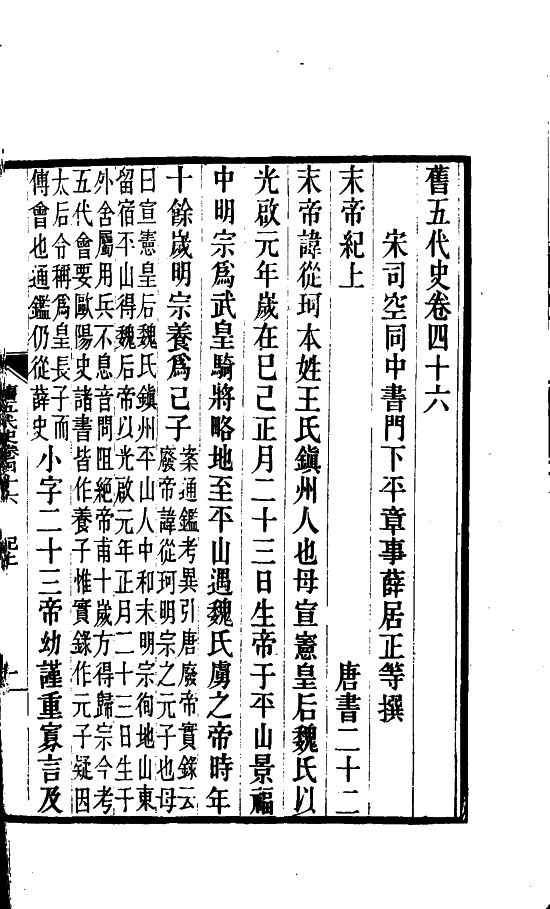 舊五代史卷四十六
宋司空同中書門下平章事薛居正等撰
末帝紀上
唐書二十二
末帝諱從珂本姓王氏鎭州人也母宣憲皇后魏氏以
光啟元年歲在巳己正月二十三日生帝于平山景福
中明宗爲武皇騎將略地至平山遇魏氏虜之帝時年
十餘嵗明宗養爲己子
案通鑑考異引唐廢帝實錄云
廢帝諱從珂明宗之元子也母
曰宣憲皇后魏氏鎭州平山人中和末明宗徇地山東
留宿平山得魏后帝以光啟元年正月二十三日生于
外舍屬用兵不息音問阻絶帝甫十歲方得歸宗今考
五代會要歐陽史諸書皆作養子惟實錄作元子疑因
太后令稱爲皇長子而
傳會也通鑑仍從薛史
小字二十三帝幼謹重寡言及